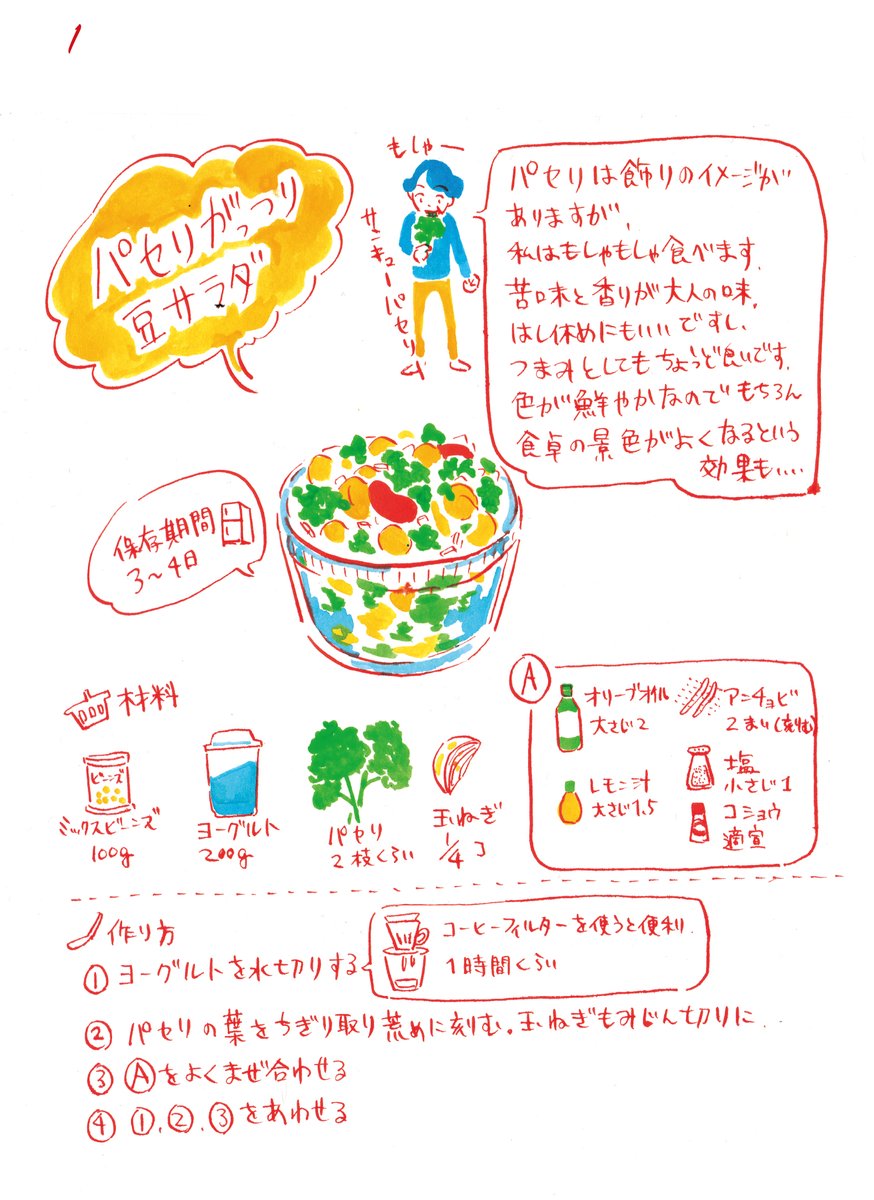 1
パセリがっつり
豆サラダ
もしゃー
サンキューパセリ
パセリは飾りのイメージが
ありますが、
私はもしゃもしゃ食べます。
苦味と香りが大人の味。
はし休めにもいいですし、
つまみとしてもちょうど良いです。
色が鮮やかなのでもちろん
食卓の景色がよくなるという
効果も....
保存期間
3〜4日
材料
ビーンズ
ミックスビーンズ
100g
ヨーグルト
200g
パセリ
2枝くらい
玉ねぎ
1/4コ
A
オリーブオイル
大さじ2
アンチョビ
2まい(刻む)
レモン汁
大さじ1.5
塩
小さじ1
コショウ
適宜
作り方
①ヨーグルトを水切りする
コーヒーフィルターを使うと便利.
1時間くらい
②パセリの葉をちぎり取り荒めに刻む。玉ねぎもみじん切りに..
③Ⓐをよくまぜ合わせる
④①.②.③をあわせる